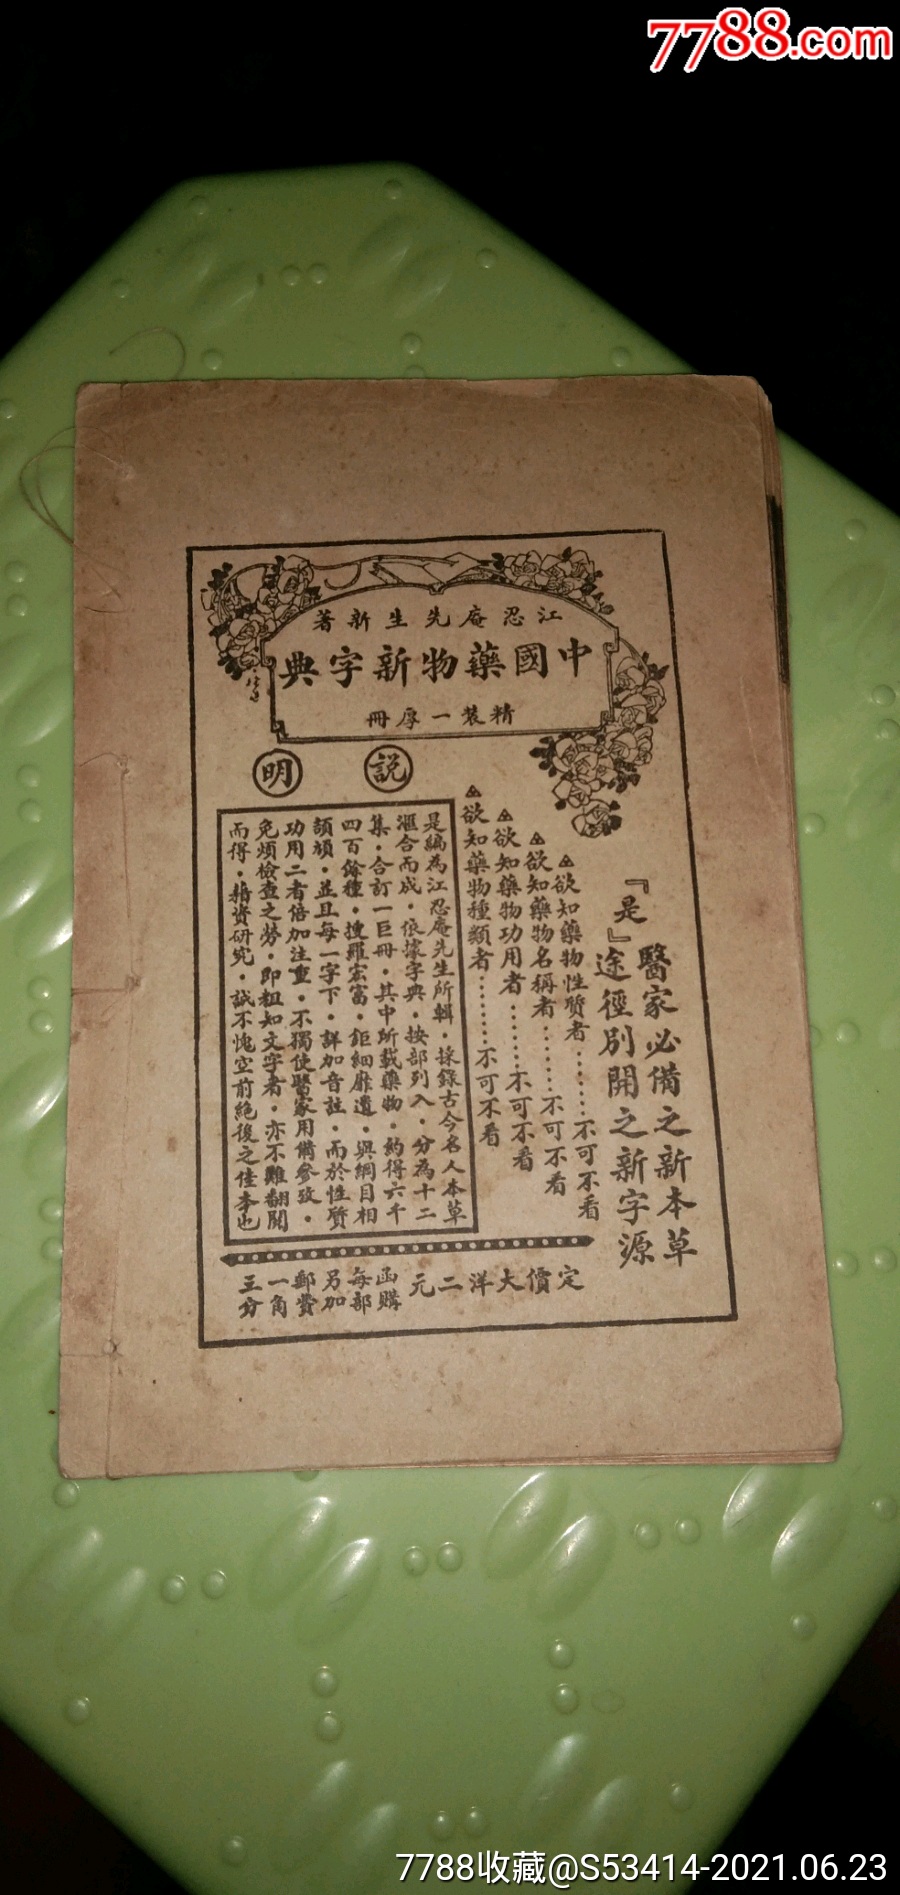 7788.com
江忍庵先生新著
中國藥物新字典
精裝一厚冊
說明
『是』
醫家必備之新本草
途徑別開之新字源
欲知藥物性質者……不可不看
欲知藥物名稱者……不可不看
欲知藥物功用者……不可不看
欲知藥物種類者……不可不看
是編為江忍庵先生所輯．採錄古今名人本草
滙合而成．依據字典．按部列入．分為十二
集．合訂一巨冊．其中所載藥物．約得六千
四百餘種．搜羅宏富．鉅細靡遺．與綱目相
頡頏．並且每一字下．詳加音註．而於性質
功用二者倍加注重．不獨使醫家用備參攷．
免煩檢查之勞．即粗知文字者．亦不難翻閱
而得．藉資研究．誠不愧空前絕後之佳本也
定價大洋二元
函購每部另加郵費一角三分
7788收藏@S53414-2021.06.23